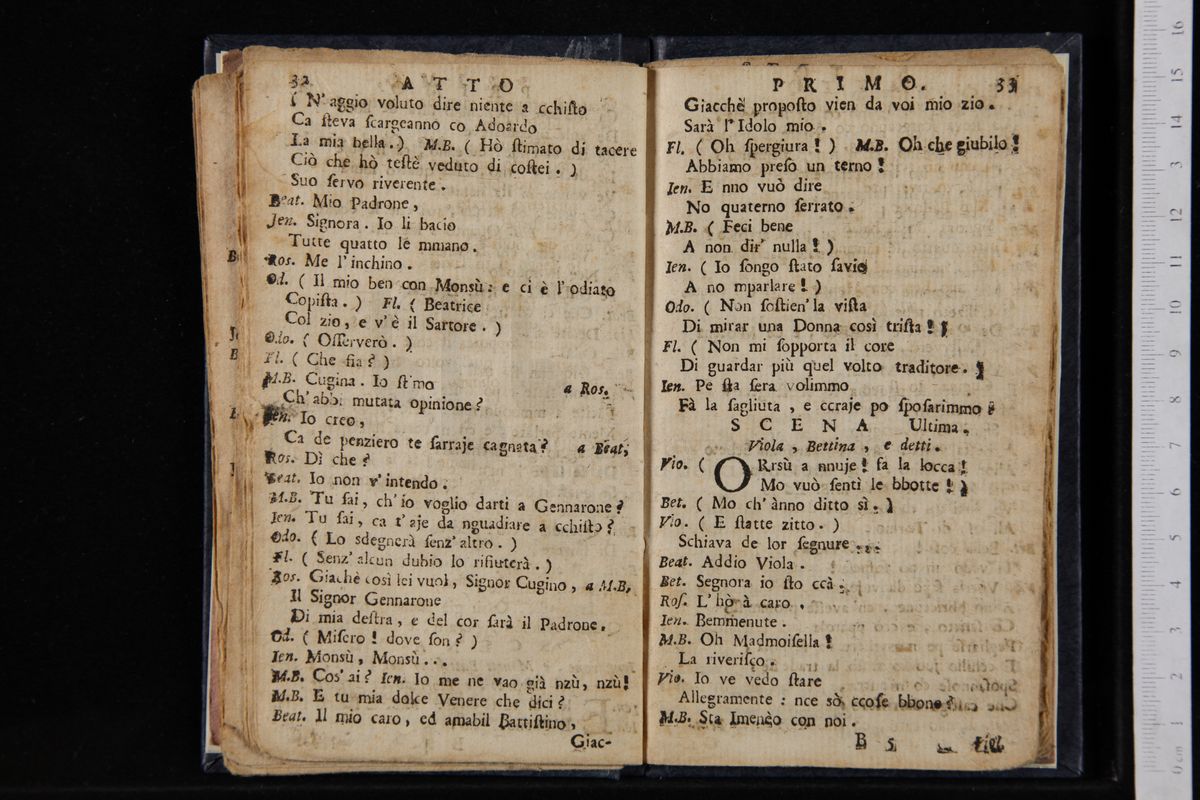 32 ATTO
( N' aggio voluto dire niente a cchiſto
Ca ſteva ſcargeanno co Adoardo
La mia bella.) M.B. ( Hò ſtimato di tacere
Ciò che hò teſtè veduto di coſtei. )
Suo ſervo riverente.
Beat. Mio Padrone,
Jen. Signora. Io li bacio
Tutte quatto le mmano.
Ros. Me l'inchino.
Od. ( Il mio ben con Monsù: e ci è l'odiato
Copiſta. ) Fl. ( Beatrice
Col zio, e v'è il Sartore. )
Odo. ( Oſſerverò. )
Fl. ( Che ſia? )
M.B. Cugina. Io ſtimo a Ros.
Ch'abbi mutata opinione?
Jen. Io creo,
Ca de penziero te ſarraje cagnata? a Beat.
Ros. Dì che?
Beat. Io non v'intendo.
M.B. Tu ſai, ch'io voglio darti a Gennarone?
Jen. Tu ſai, ca t'aje da nguadiare a cchiſto?
Odo. ( Lo sdegnerà ſenz'altro. )
Fl. ( Senz'alcun dubio lo rifiuterà. )
Ros. Giachè così lei vuol, Signor Cugino, a M.B.
Il Signor Gennarone
Di mia deſtra, e del cor ſarà il Padrone.
Od. ( Miſero! dove ſon? )
Ien. Monsù, Monsù...
M.B. Cos'ai? Ien. Io me ne vao già nzù, nzù!
M.B. E tu mia dolce Venere che dici?
Beat. Il mio caro, ed amabil Battiſtino,
Giac-
PRIMO. 33
Giacchè propoſto vien da voi mio zio.
Sarà l'Idolo mio.
Fl. ( Oh ſpergiura! ) M.B. Oh che giubilo!
Abbiamo preſo un terno!
Ien. E nno vuò dire
No quaterno ſerrato.
M.B. ( Feci bene
A non dir' nulla! )
Ien. ( Io ſongo ſtato ſavio
A no mparlare! )
Odo. ( Non ſoſtien' la viſta
Di mirar una Donna così triſta! )
Fl. ( Non mi ſopporta il core
Di guardar più quel volto traditore. )
Ien. Pe ſta ſera volimmo
Fà la ſagliuta, e ccraje po ſpoſarimmo?
SCENA Ultima.
Viola, Bettina, e detti.
Vio. ( ORrsù a nnuje! fa la locca!
Mo vuò ſentì le bbotte! )
Bet. ( Mo ch'ànno ditto sì. )
Vio. ( E ſtatte zitto. )
Schiava de lor ſegnure...
Beat. Addio Viola.
Bet. Segnora io ſto ccà.
Roſ. L'hò à caro.
Ien. Bemmenute.
M.B. Oh Madmoiſella!
La riveriſco.
Vio. Io ve vedo ſtare
Allegramente: nce sò ccoſe bbone?
M.B. Sta Imenèo con noi.
B 5